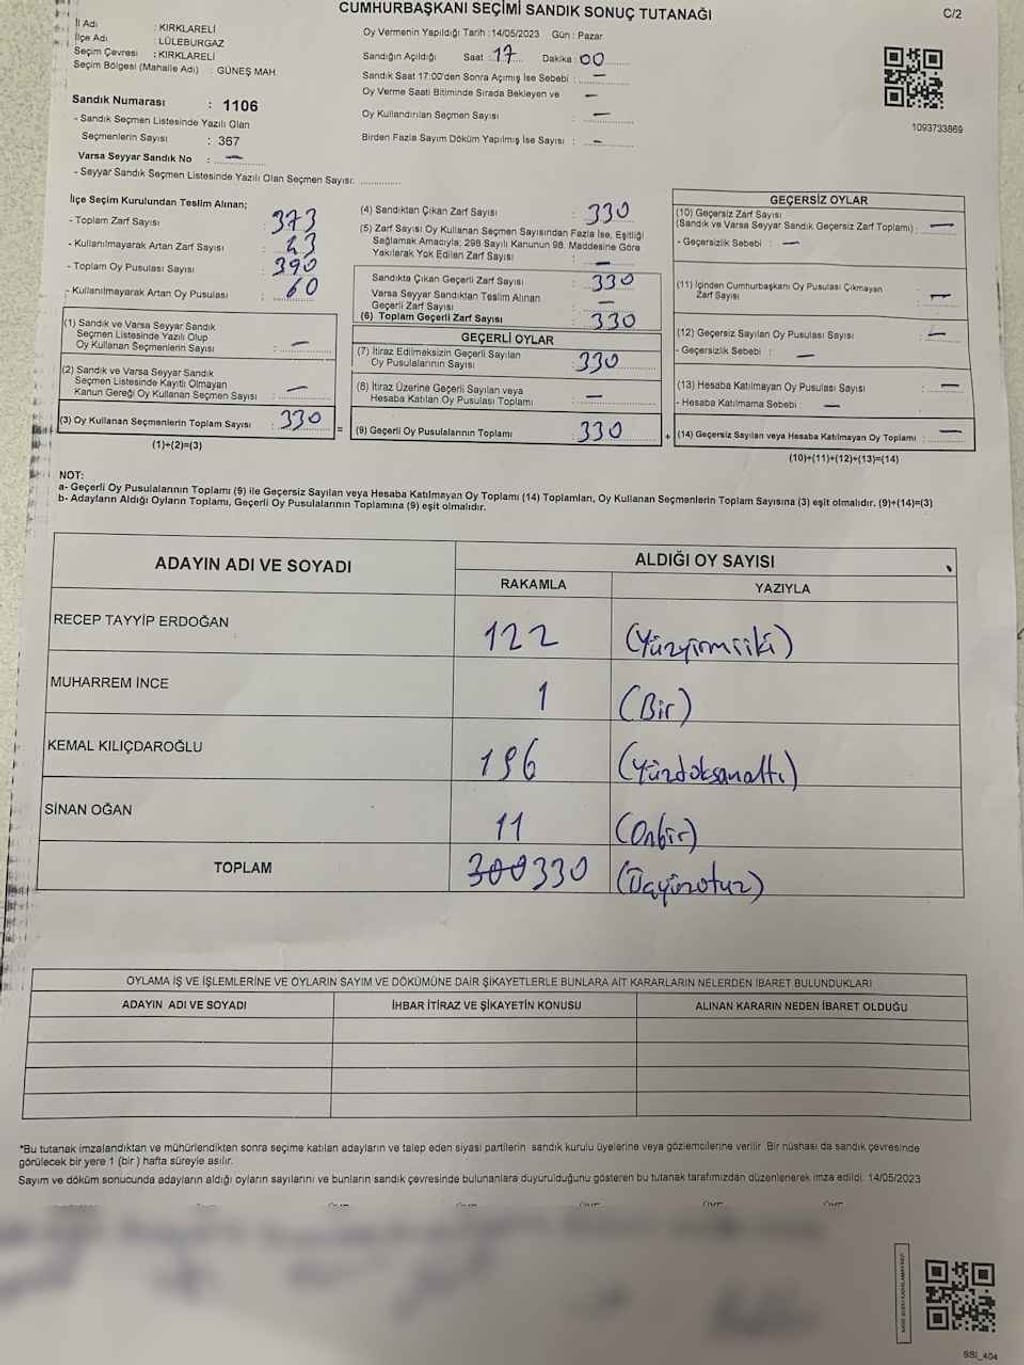 CUMHURBAŞKANI SEÇİMİ SANDIK SONUÇ TUTANAĞI
C/2
İl Adı : KIRKLARELİ
İlçe Adı : LÜLEBURGAZ
Seçim Çevresi : KIRKLARELİ
Seçim Bölgesi (Mahalle Adı) : GÜNEŞ MAH.
Sandık Numarası : 1106
- Sandık Seçmen Listesinde Yazılı Olan
Seçmenlerin Sayısı : 367
Varsa Seyyar Sandık No : —
- Seyyar Sandık Seçmen Listesinde Yazılı Olan Seçmen Sayısı:
Oy Vermenin Yapıldığı Tarih : 14/05/2023 Gün : Pazar
Sandığın Açıldığı Saat : 17 Dakika 00
Sandık Saat 17:00'den Sonra Açımış İse Sebebi : —
Oy Verme Saati Bitiminde Sırada Bekleyen ve —
Oy Kullandırılan Seçmen Sayısı : —
Birden Fazla Sayım Döküm Yapılmış İse Sayısı : —
1093733869
İlçe Seçim Kurulundan Teslim Alınan;
- Toplam Zarf Sayısı : 373
- Kullanılmayarak Artan Zarf Sayısı :
- Toplam Oy Pusulası Sayısı : 390
- Kullanılmayarak Artan Oy Pusulası : 60
(1) Sandık ve Varsa Seyyar Sandık
Seçmen Listesinde Yazılı Olup
Oy Kullanan Seçmenlerin Sayısı : —
(2) Sandık ve Varsa Seyyar Sandık
Seçmen Listesinde Kayıtlı Olmayan
Kanun Gereği Oy Kullanan Seçmen Sayısı : —
(3) Oy Kullanan Seçmenlerin Toplam Sayısı : 330
(1)+(2)=(3)
=
(4) Sandıktan Çıkan Zarf Sayısı : 330
(5) Zarf Sayısı Oy Kullanan Seçmen Sayısından Fazla İse, Eşitliği
Sağlamak Amacıyla; 298 Sayılı Kanunun 98. Maddesine Göre
Yakılarak Yok Edilen Zarf Sayısı : —
Sandıkta Çıkan Geçerli Zarf Sayısı : 330
Varsa Seyyar Sandıktan Teslim Alınan
Geçerli Zarf Sayısı : —
(6) Toplam Geçerli Zarf Sayısı : 330
GEÇERLİ OYLAR
(7) İtiraz Edilmeksizin Geçerli Sayılan
Oy Pusulalarının Sayısı : 330
(8) İtiraz Üzerine Geçerli Sayılan veya
Hesaba Katılan Oy Pusulası Toplamı : —
(9) Geçerli Oy Pusulalarının Toplamı : 330
+
GEÇERSİZ OYLAR
(10) Geçersiz Zarf Sayısı
(Sandık ve Varsa Seyyar Sandık Geçersiz Zarf Toplamı) : —
- Geçersizlik Sebebi : —
(11) İçinden Cumhurbaşkanı Oy Pusulası Çıkmayan
Zarf Sayısı : —
(12) Geçersiz Sayılan Oy Pusulası Sayısı : —
- Geçersizlik Sebebi : —
(13) Hesaba Katılmayan Oy Pusulası Sayısı : —
- Hesaba Katılmama Sebebi : —
(14) Geçersiz Sayılan veya Hesaba Katılmayan Oy Toplamı : —
(10)+(11)+(12)+(13)=(14)
NOT:
a- Geçerli Oy Pusulalarının Toplamı (9) ile Geçersiz Sayılan veya Hesaba Katılmayan Oy Toplamı (14) Toplamları, Oy Kullanan Seçmenlerin Toplam Sayısına (3) eşit olmalıdır. (9)+(14)=(3)
b- Adayların Aldığı Oyların Toplamı, Geçerli Oy Pusulalarının Toplamına (9) eşit olmalıdır.
ADAYIN ADI VE SOYADI
ALDIĞI OY SAYISI
RAKAMLA YAZIYLA
RECEP TAYYİP ERDOĞAN 122 (Yüzyirmiiki)
MUHARREM İNCE 1 (Bir)
KEMAL KILIÇDAROĞLU 196 (Yüzdoksanaltı)
SİNAN OĞAN 11 (Onbir)
TOPLAM 300 330 (Üçyüzotuz)
OYLAMA İŞ VE İŞLEMLERİNE VE OYLARIN SAYIM VE DÖKÜMÜNE DAİR ŞİKAYETLERLE BUNLARA AİT KARARLARIN NELERDEN İBARET BULUNDUKLARI
ADAYIN ADI VE SOYADI İHBAR İTİRAZ VE ŞİKAYETİN KONUSU ALINAN KARARIN NEDEN İBARET OLDUĞU
*Bu tutanak imzalandıktan ve mühürlendikten sonra seçime katılan adayların ve talep eden siyasi partilerin sandık kurulu üyelerine veya gözlemcilerine verilir. Bir nüshası da sandık çevresinde
görülecek bir yere 1 (bir) hafta süreyle asılır.
Sayım ve döküm sonucunda adayların aldığı oyların sayılarını ve bunların sandık çevresinde bulunanlara duyurulduğunu gösteren bu tutanak tarafımızdan düzenlenerek imza edildi. 14/05/2023
SSI_404